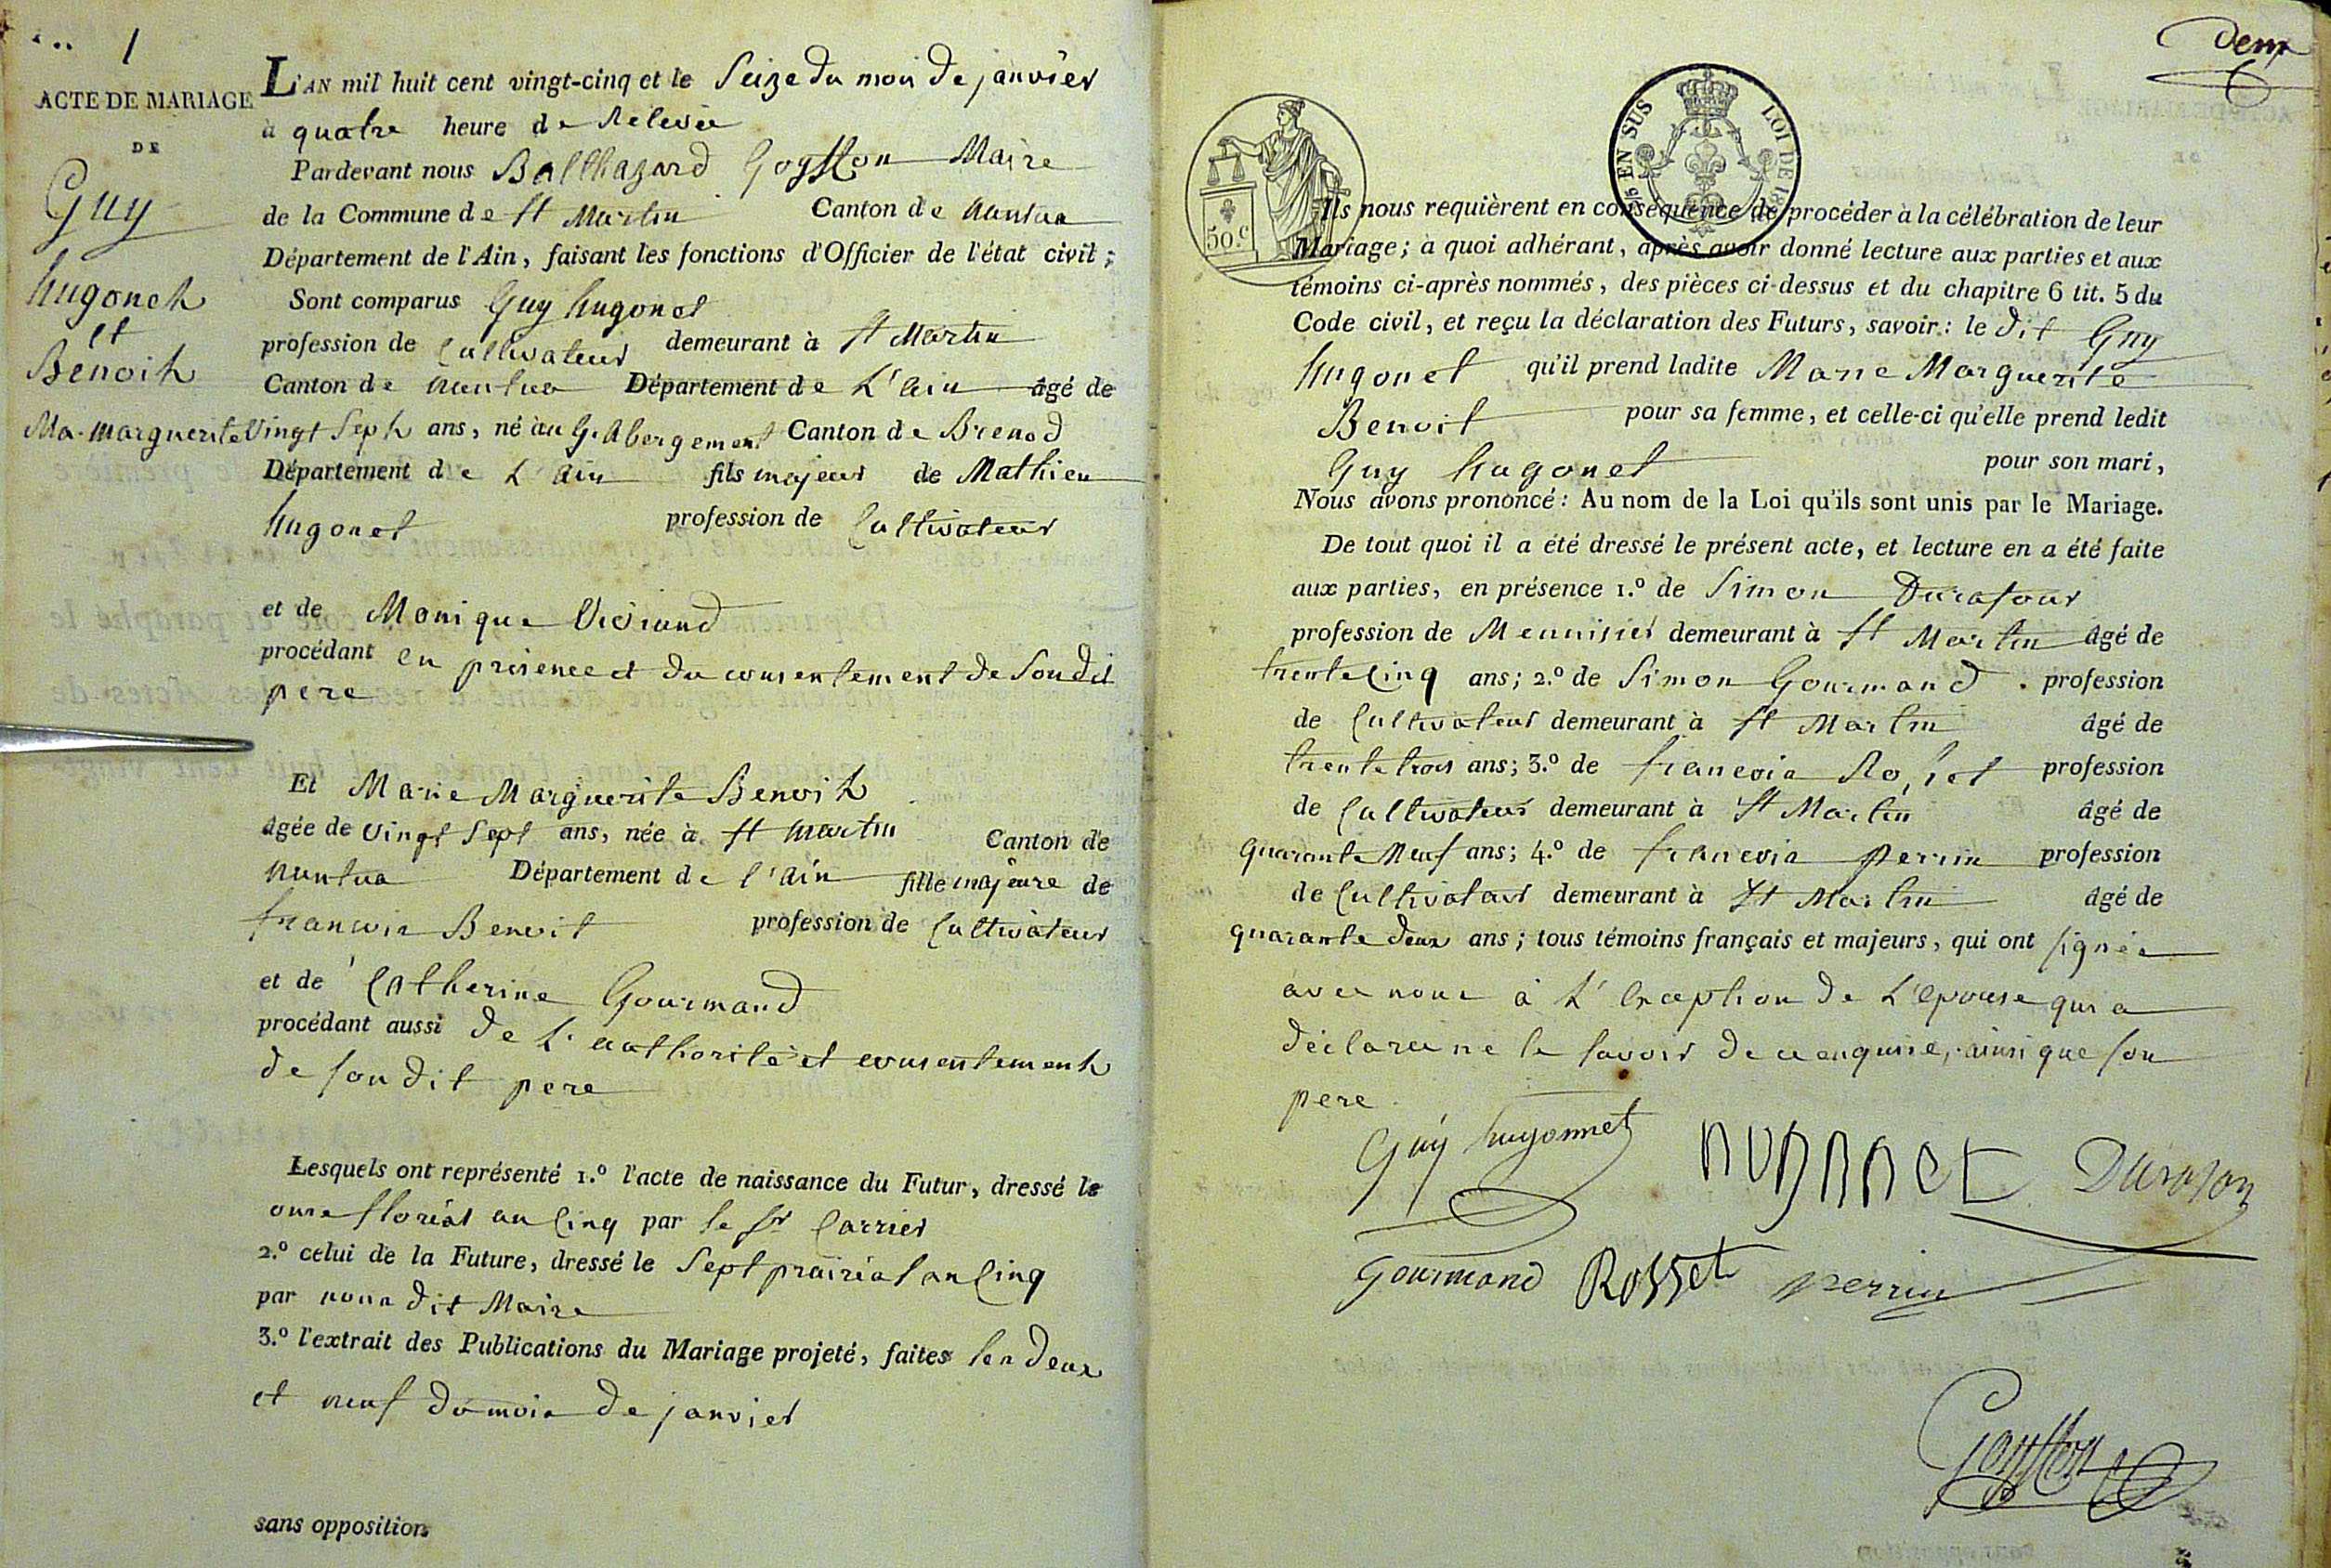 1
ACTE DE MARIAGE
DE
Guy
hugonet
et
Benoit
Ma. marguerite
L'AN mil huit cent vingt-cinq et le Seize du mois de janvier
à quatre heure de Relevée
Pardevant nous Balthazard Goyffon Maire
de la Commune de St Martin Canton de Nantua
Département de l'Ain, faisant les fonctions d'Officier de l'état civil;
Sont comparus Guy hugonet
profession de Cultivateur demeurant à St Martin
Canton de Nantua Département de L'ain âgé de
Vingt Sept ans, né au G. Abergement Canton de Brenod
Département de L'ain fils majeur de Mathieu
hugonet profession de Cultivateur
et de Monique Viviand
procédant en présence et du consentement de Son dit
pere
Et Marie Marguerite Benoit
âgée de vingt Sept ans, née à St Martin Canton de
Nantua Département de l'ain fille majeure de
francois Benoit profession de Cultivateur
et de Catherine Gourmand
procédant aussi de L'authorité et consentement
de son dit pere
Lesquels ont représenté 1.º l'acte de naissance du Futur, dressé le
onse floréal an Cinq par le Sr Carrier
2.º celui de la Future, dressé le Sept prairéal an Cinq
par nous dit Maire
3.º l'extrait des Publications du Mariage projeté, faites les deux
et neuf du mois de janvier
sans opposition
deux
50.c
EN SUS LOI DE
Ils nous requièrent en conséquence de procéder à la célébration de leur
Mariage; à quoi adhérant, après avoir donné lecture aux parties et aux
témoins ci-après nommés, des pièces ci-dessus et du chapitre 6 tit. 5 du
Code civil, et reçu la déclaration des Futurs, savoir: le dit Guy
hugonet qu'il prend ladite Marie Marguerite
Benoit pour sa femme, et celle-ci qu'elle prend ledit
Guy hugonet pour son mari,
Nous avons prononcé: Au nom de la Loi qu'ils sont unis par le Mariage.
De tout quoi il a été dressé le présent acte, et lecture en a été faite
aux parties, en présence 1.º de Simon Durafour
profession de Menuisier demeurant à St Martin âgé de
trente Cinq ans; 2.º de Simon Gourmand profession
de Cultivateur demeurant à St Martin âgé de
trente trois ans; 3.º de francois Roset profession
de Cultivateur demeurant à St Martin âgé de
quarante Neuf ans; 4.º de francois perrin profession
de Cultivateur demeurant à St Martin âgé de
quarante deux ans; tous témoins français et majeurs, qui ont signée
avec nous à L'exception de L'epouse qui a
déclaré ne le savoir de ce enquise, ainsi que son
pere.
Guy hugonnet Durafour
Gourmand Rosset perrin
Goyffon